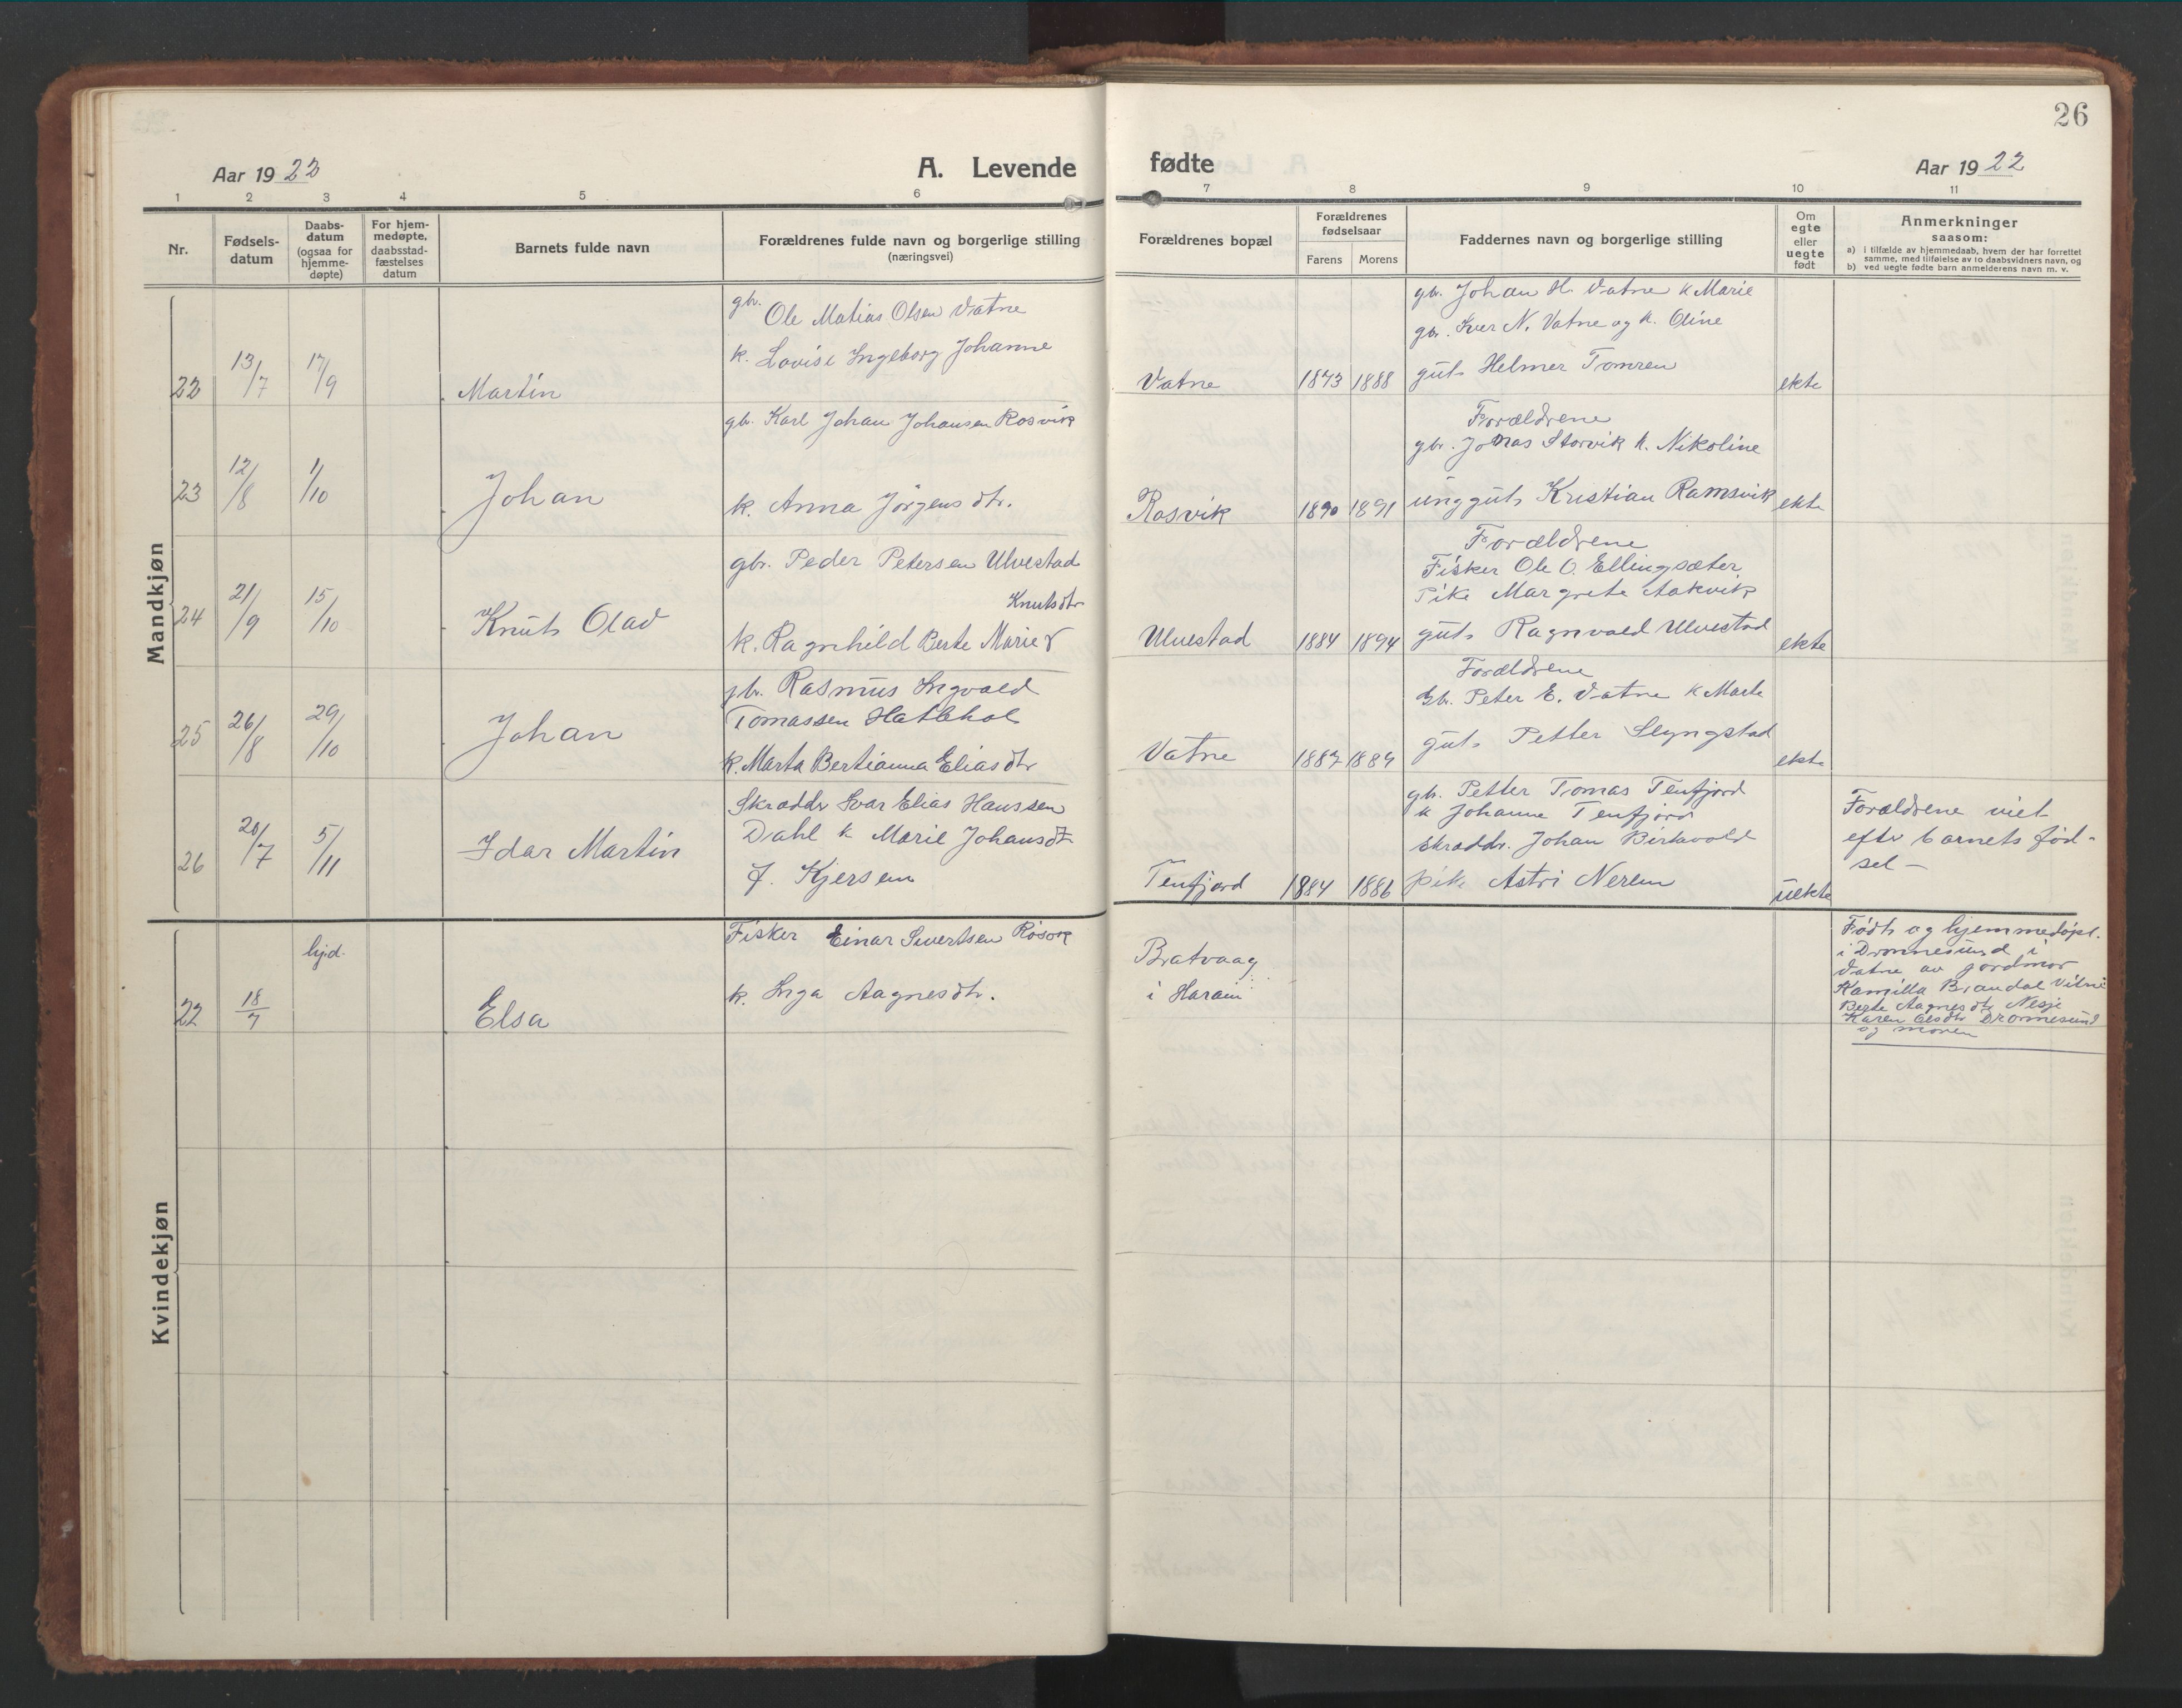 26
Aar 1922
A. Levende fødte
Aar 1922
1 2 3 4 5 6 7 8 9 10 11
Nr.
Fødsels-
datum
Daabs-
datum
(ogsaa for
hjemme-
døpte)
For hjem-
medøpte,
daabsstad-
fæstelses
datum
Barnets fulde navn
Forældrenes fulde navn og borgerlige stilling
(næringsvei)
Forældrenes bopæl
Forældrenes
fødselsaar
Farens Morens
Faddernes navn og borgerlige stilling
Om
egte
eller
uegte
født
Anmerkninger
saasom:
a) i tilfælde av hjemmedaab, hvem der har forrettet
samme, med tilføielse av to daabsvidners navn, og
b) ved uegte fødte barn anmelderens navn m. v.
Mandkjøn
22 13/7 17/9 Martin
gbr. Ole Matias Olsen Vatne
k. Lovise Ingeborg Johanne
Vatne 1873 1888
gbr. Johan H. Vatne k Marie
gbr. Iver N. Vatne og k. Oline
gut Helmer Tomren
ekte
23 12/8 1/10 Johan
gbr. Karl Johan Johansen Rosvik
k. Anna Jørgensdtr.
Rosvik 1890 1891
Forældrene
gbr. Jonas Storvik k. Nikoline
unggut Kristian Ramsvik
ekte
24 21/9 15/10 Knut Olav
gbr. Peder Petersen Ulvestad
Knutsdtr
k. Ragnhild Berte Marie
Ulvestad 1884 1894
Forældrene
Fisker Ole O. Ellingsæter
Pike Margrete Aakvik
gut Ragnvald Ulvestad
ekte
25 26/8 29/10 Johan
gbr. Rasmus Ingvald
Tomassen Hatlehol
k. Marta Bertianna Eliasdtr
Vatne 1887 1889
Forældrene
Gbr. Peter E. Vatne k Marte
gut Petter Slyngstad
ekte
26 20/7 5/11 Idar Martin
Skrædder Ivar Elias Hanssen
Dahl k Marie Johansdtr
f. Kjersem
Tenfjord 1884 1886
gbr. Petter Tomas Tenfjord
k Johanne Tenfjord
Skrædder. Johan Birkevold
pike Astri Nerem
uekte
Forældrene viet
efter barnets fød-
sel
Kvindekjøn
22 18/7 hjd. Elsa
Fisker Einar Sivertsen Røsok
k. Inga Aagnesdtr.
Bratvaag
i Haram
Født og hjemmedøpt.
i Dronnesund i
Vatne av jordmor
Kamilla Brandal Vitne
Berte Aagnesdtr Nesje
Karen Olsdtr Dronnesund
og moren